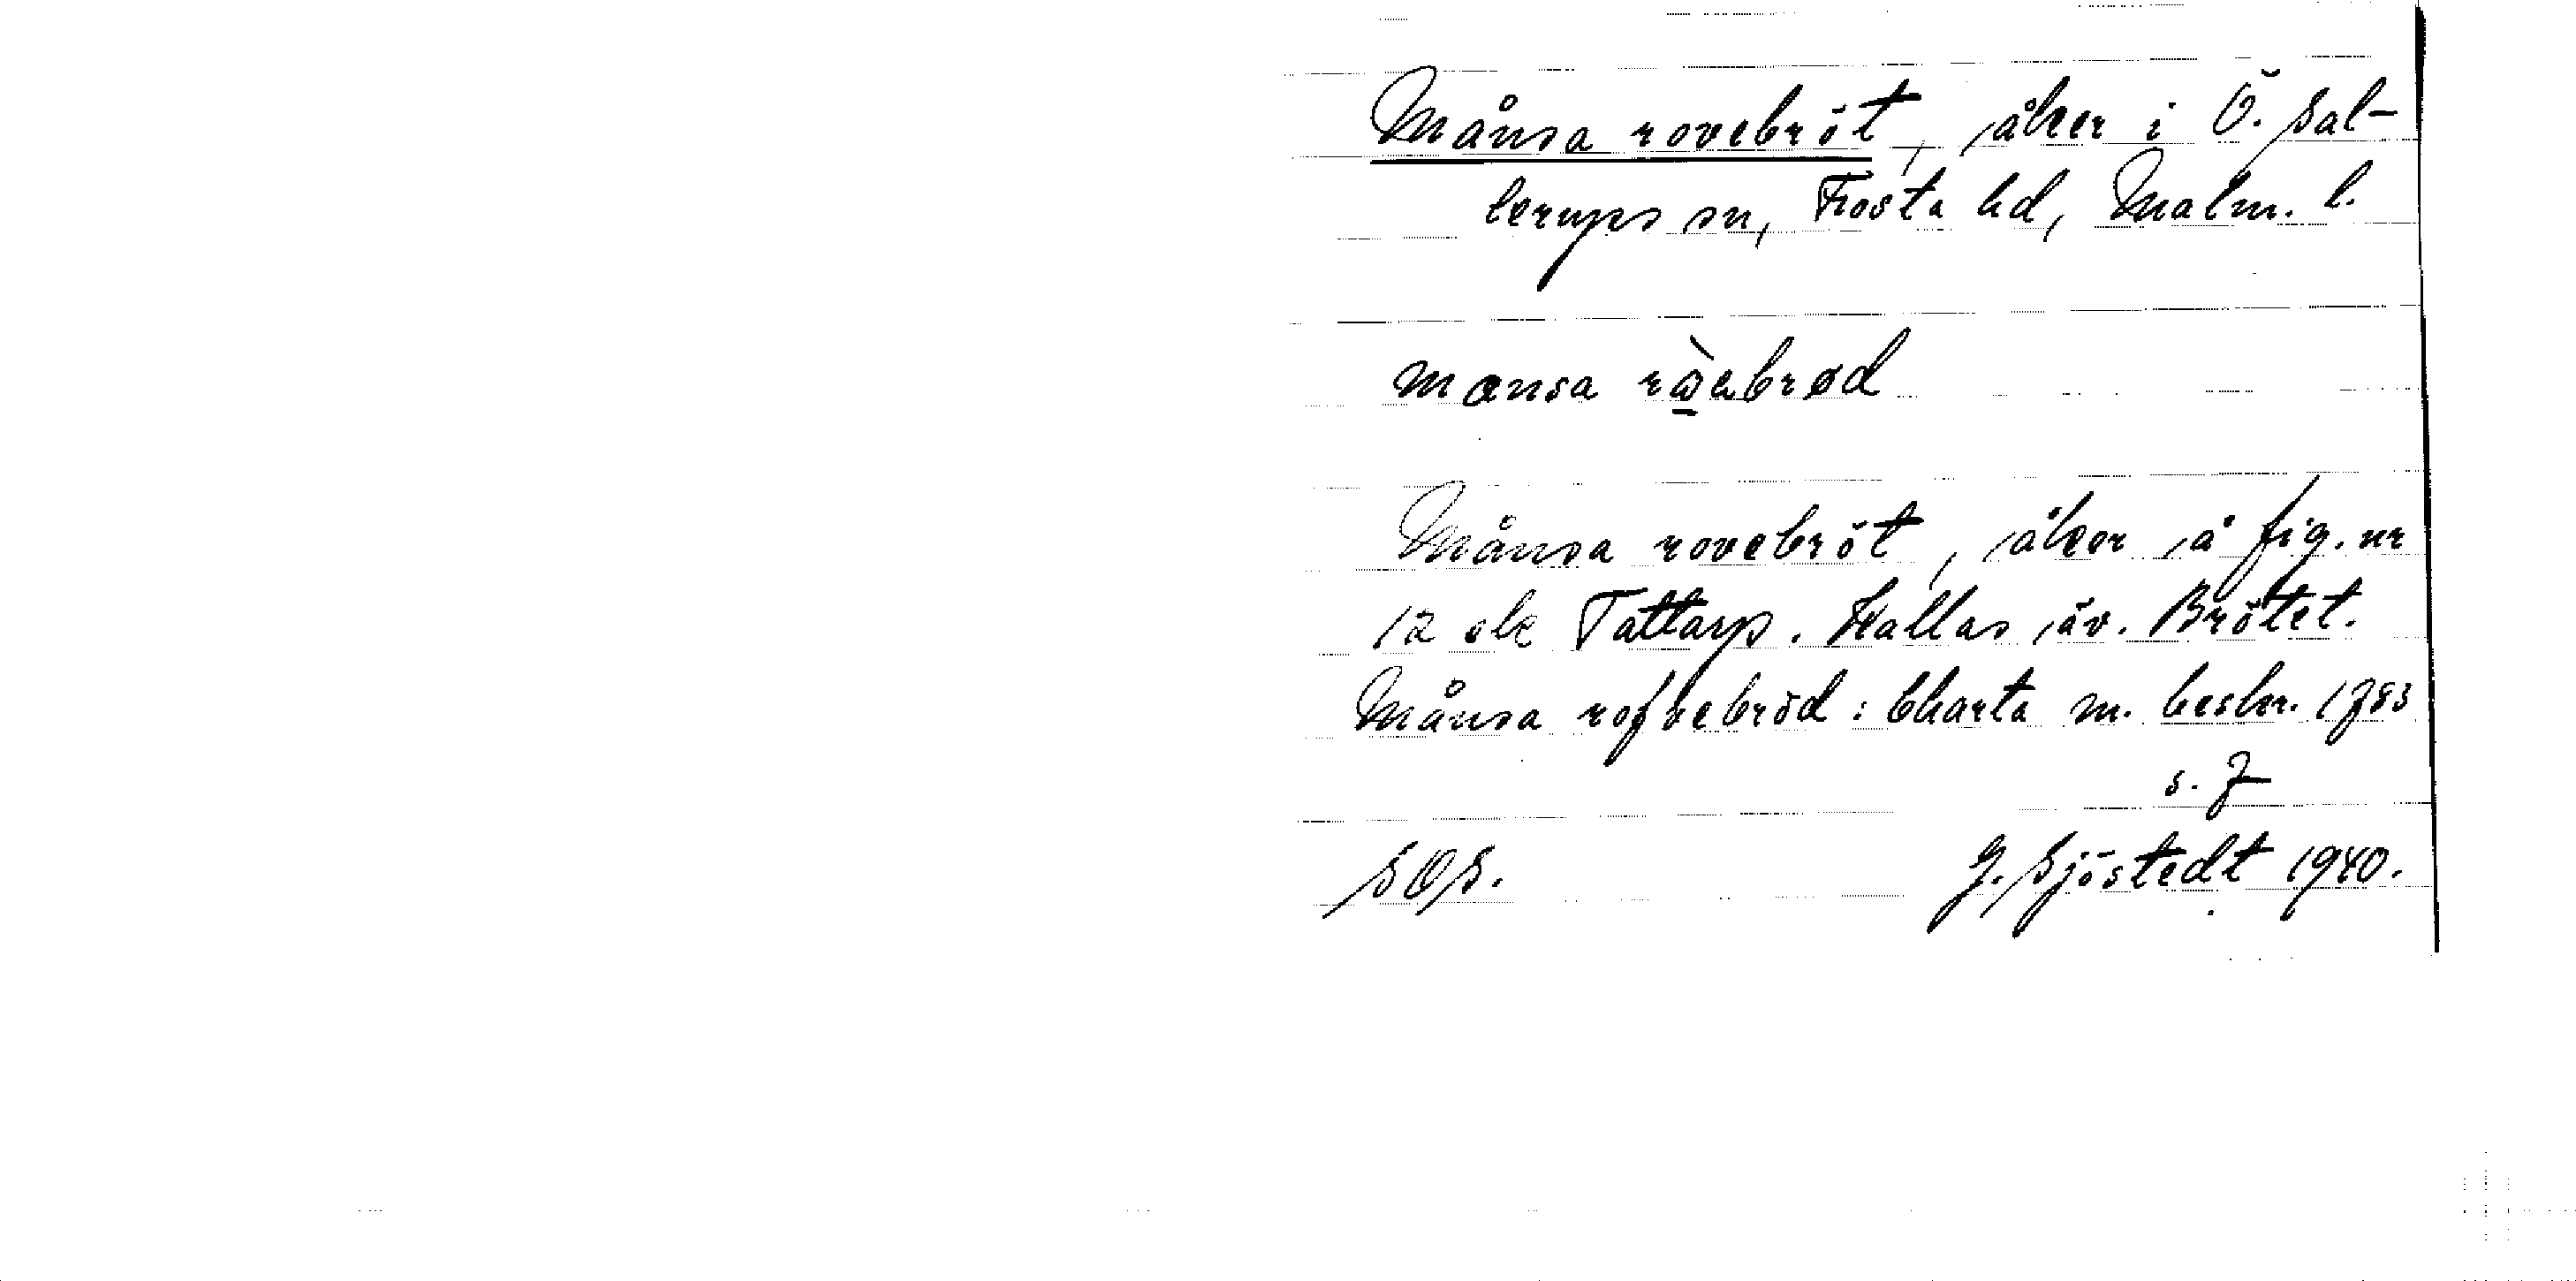 Månsa rovebröt, åker i Ö. Sal-
lerups sn, Frosta hd, Malm. l.
mansa ràebrød
Månsa rovebröt, åker å fig. nr
12 ek Tattarp. Kallas äv. Brötet.
Månsa rofvebröd: Charta m. beskr. 1783
s. 7
SOS.
G. Sjöstedt 1940.